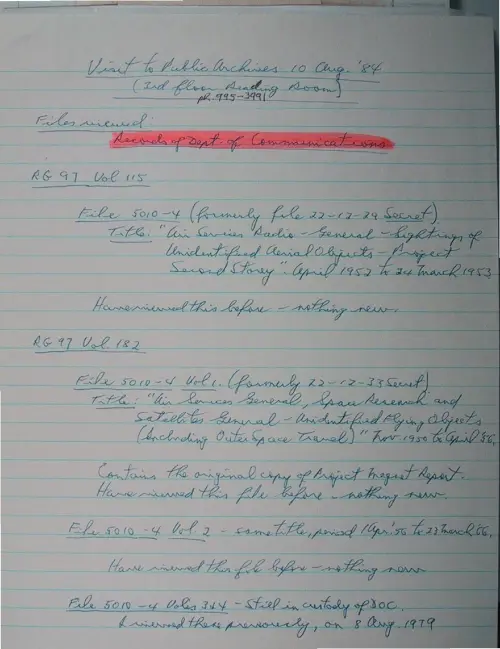 Visit to Public Archives 10 Aug. '84
(3rd floor Reading Room)
ph. 995-3991
Files viewed:
Records of Dept. of Communications
RG 97 Vol 115
File 5010-4 (formerly file 22-12-29 Secret)
Title: "Air Services Radio - General - Sightings of
Unidentified Aerial Objects - Project
Second Storey". April 1952 to 24 March 1953
Have viewed this before - nothing new.
RG 97 Vol. 182
File 5010-4 Vol 1. (formerly 22-12-33 Secret)
Title: "Air Services General, Space Research and
Satellites General - Unidentified Flying Objects
(Including Outer Space Travel)" Nov 1950 to April 56.
Contains the original copy of Project Magnet Report.
Have viewed this file before - nothing new.
File 5010-4 Vol. 2 - same title, period 1 Apr. 56 to 23 March, 66.
Have viewed this file before - nothing new
File 5010-4 Vols 3&4 - Still in custody of DOC.
I viewed these previously, on 8 Aug. 1979